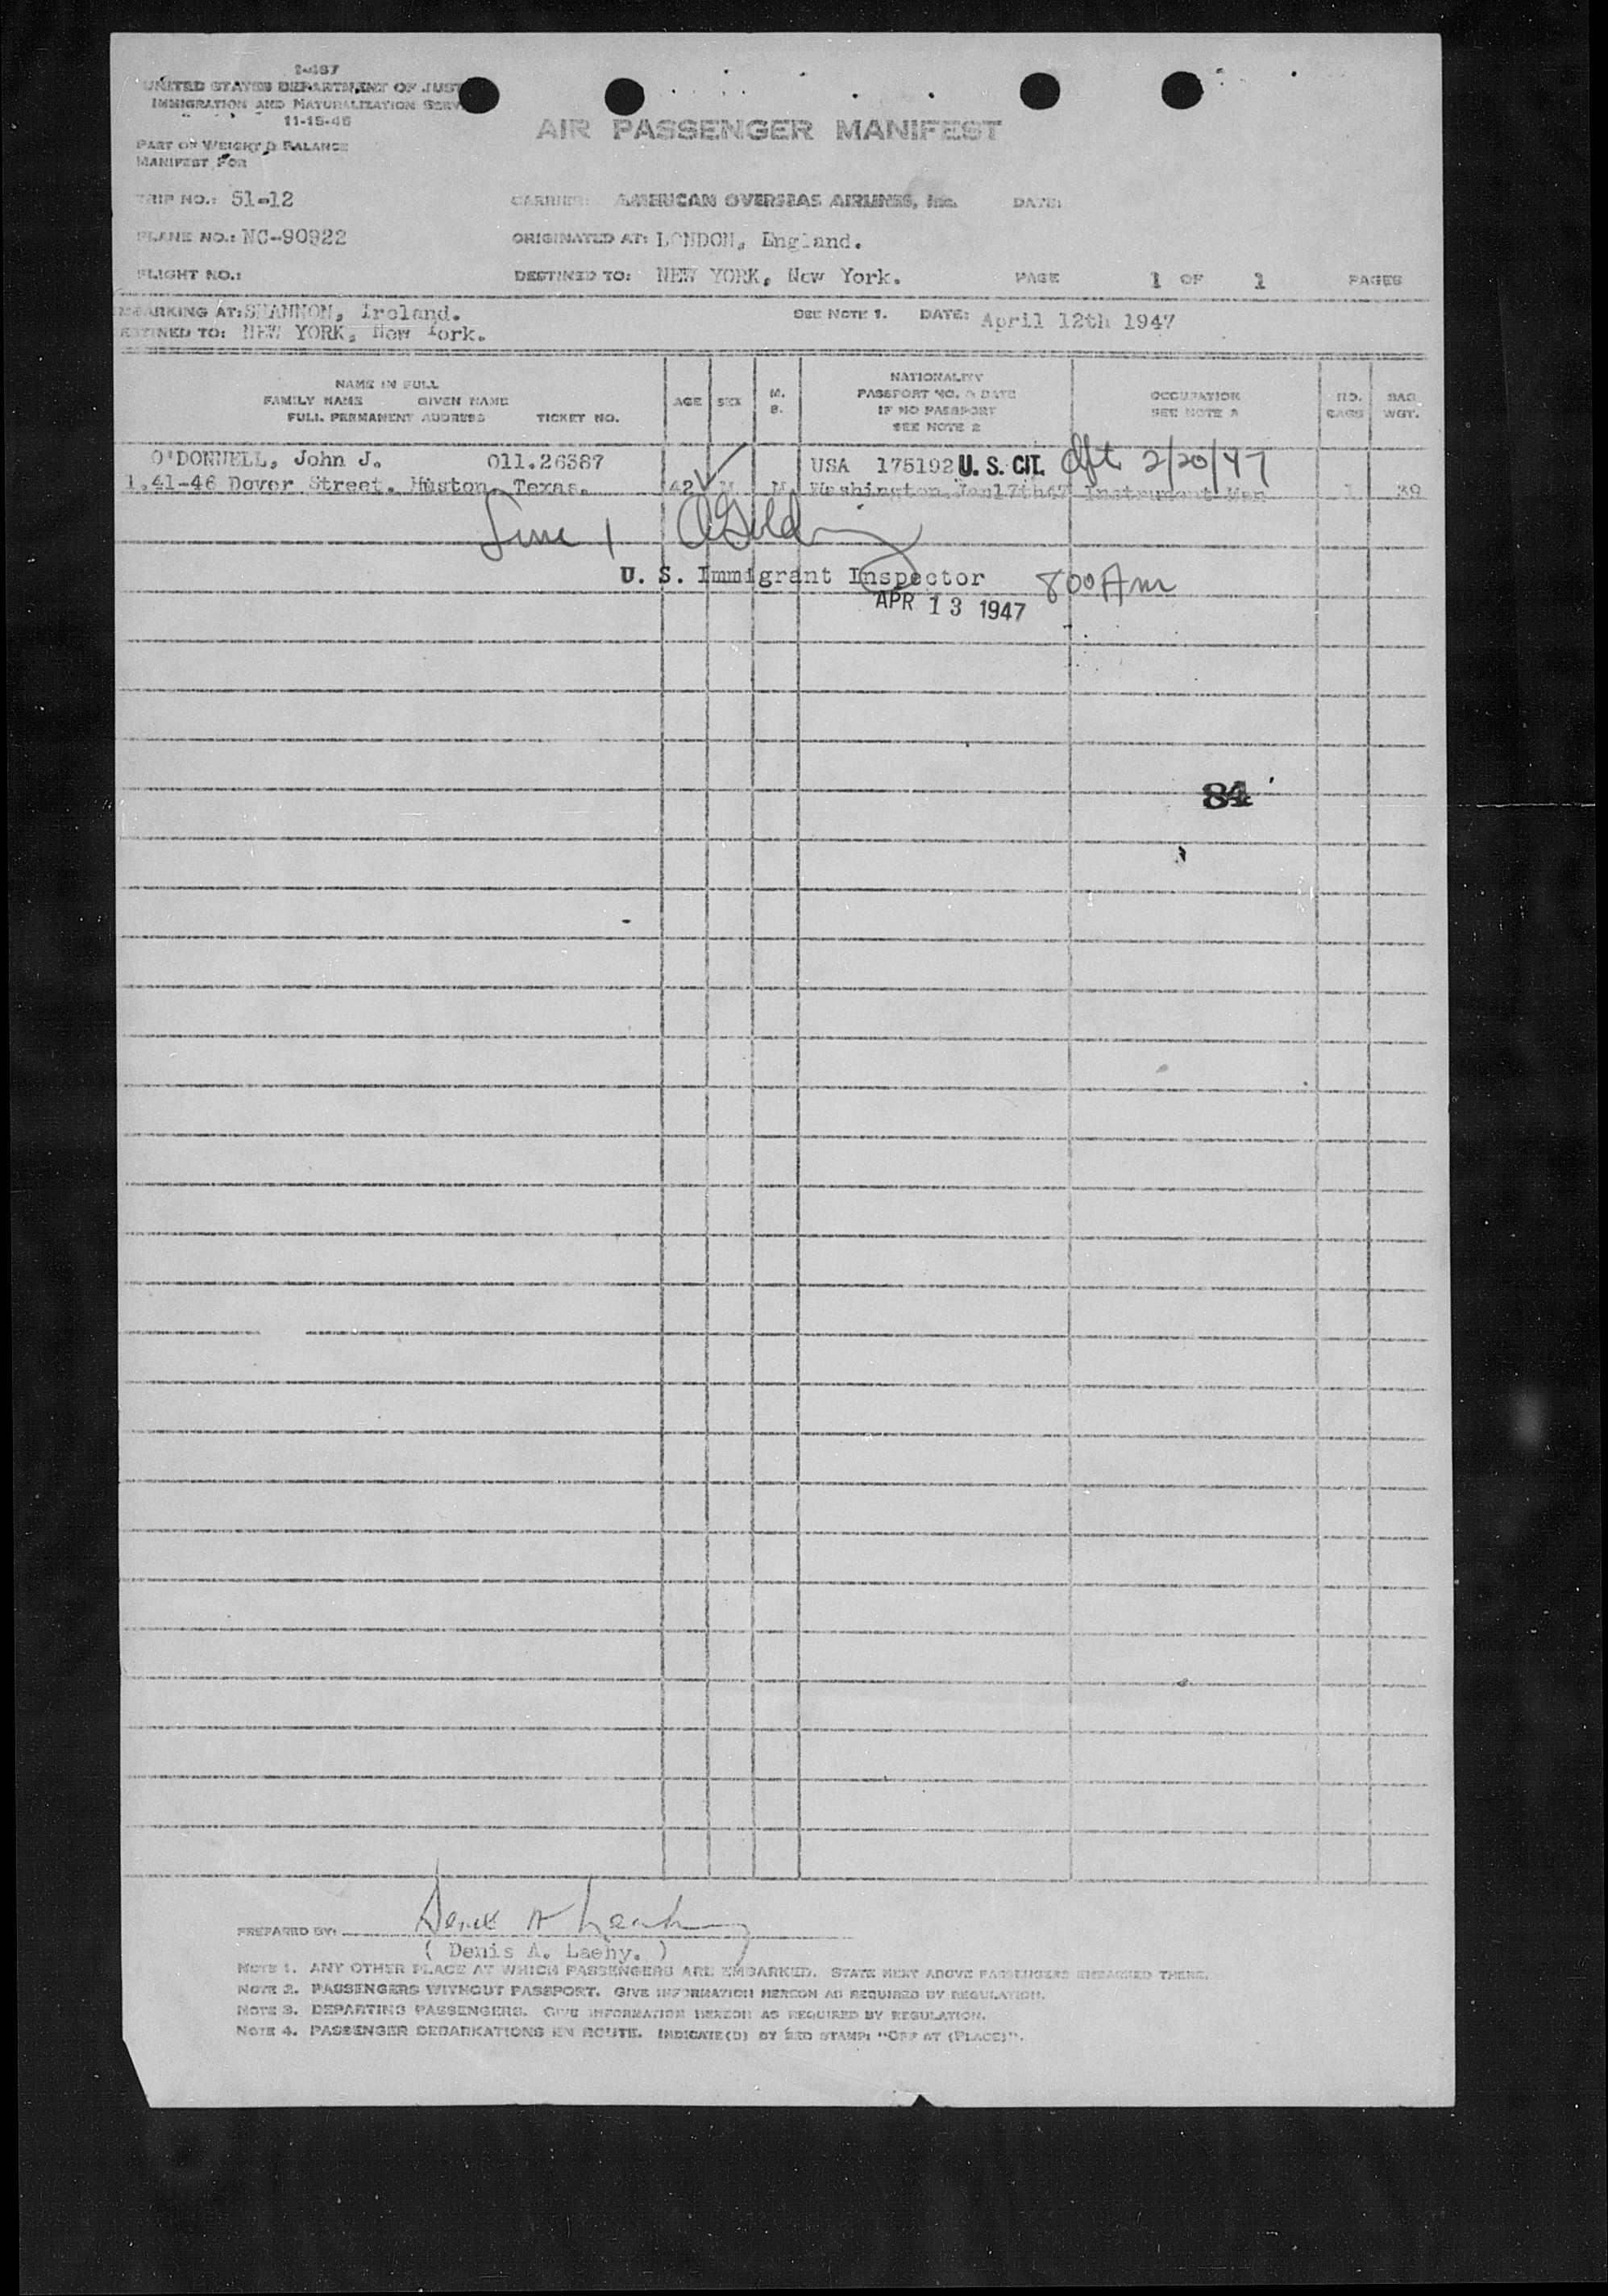 I-467
UNITED STATES DEPARTMENT OF JUST
IMMIGRATION AND NATURALIZATION SERV
11-15-46
AIR PASSENGER MANIFEST
PART OF WEIGHT & BALANCE
MANIFEST FOR
TRIP NO.: 51-12 CARRIER: AMERICAN OVERSEAS AIRLINES, Inc. DATE:
PLANE NO.: NC-90922 ORIGINATED AT: LONDON, England.
FLIGHT NO.: DESTINED TO: NEW YORK, New York. PAGE 1 OF 1 PAGES
BARKING AT: SHANNON, Ireland. SEE NOTE 1. DATE: April 12th 1947
STINED TO: NEW YORK, New York.
NAME IN FULL
FAMILY NAME GIVEN NAME
FULL PERMANENT ADDRESS TICKET NO.
AGE SEX M. S.
NATIONALITY
PASSPORT NO. & DATE
IF NO PASSPORT
SEE NOTE 2
OCCUPATION
SEE NOTE 3
NO. BAGS
BAG WGT.
O'DONNELL, John J. 011.26387 USA 175192 U. S. CIT. dft 2/20/47
1.41-46 Dover Street. Huston, Texas. 42 M M Washington Jan17th47 Instrument Man 1 39
Line 1
U. S. Immigrant Inspector 800 Am
APR 13 1947
84
PREPARED BY:
( Denis A. Laehy. )
NOTE 1. ANY OTHER PLACE AT WHICH PASSENGERS ARE EMBARKED. STATE NEXT ABOVE PASSENGERS EMBARKED THERE.
NOTE 2. PASSENGERS WITHOUT PASSPORT. GIVE INFORMATION HEREON AS REQUIRED BY REGULATION.
NOTE 3. DEPARTING PASSENGERS. GIVE INFORMATION HEREON AS REQUIRED BY REGULATION.
NOTE 4. PASSENGER DEBARKATIONS EN ROUTE. INDICATE(D) BY RED STAMP: "OFF AT (PLACE)".